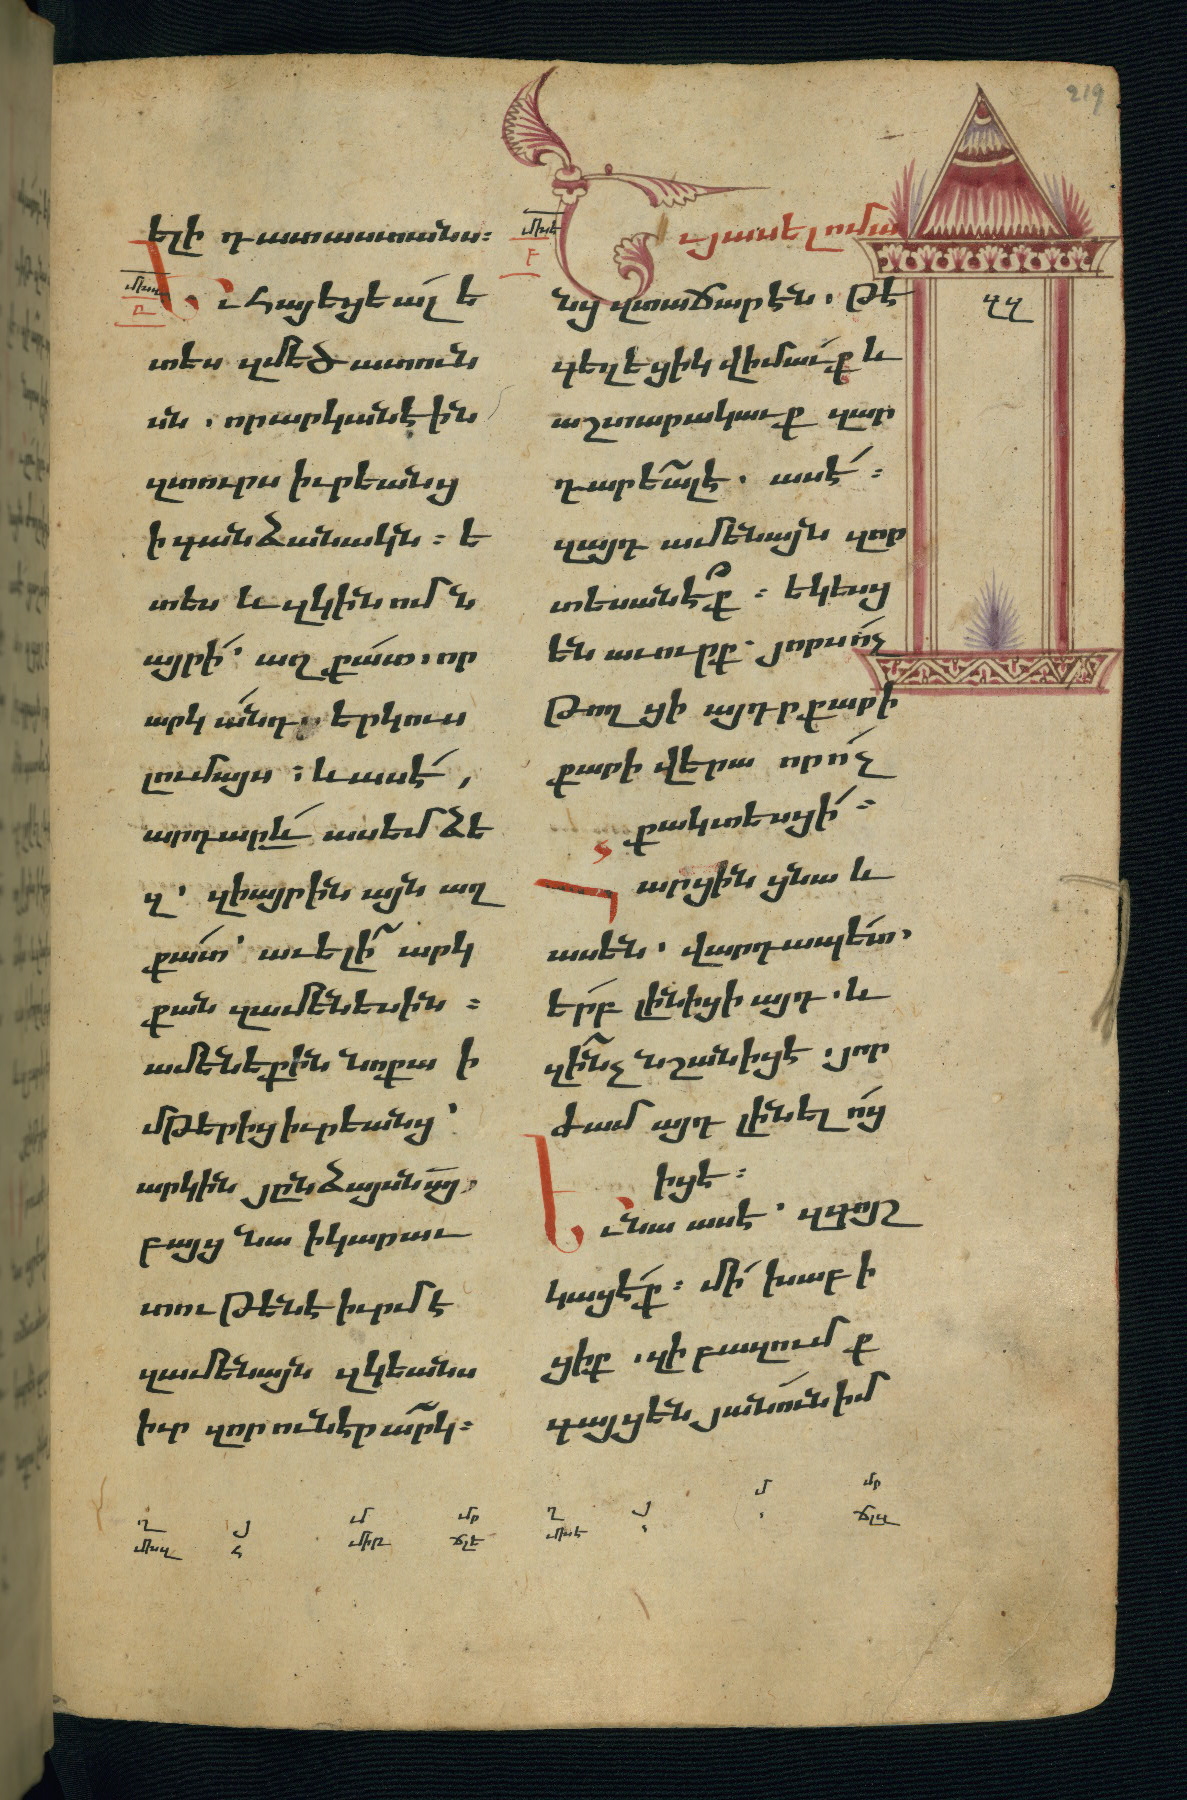 219
ելի դատաստանս։
Եւ հայեցեալ ե
տես զմեծատուն
սն, որ արկանէին
զտուրս իւրեանց
ի գանձանակն։ ե
տես և զկին ոմն
այրի՛ աղքատ, որ
արկ անդ, երկուս
լումայս։ և ասէ,
արդարև ասեմ ձե
զ՝ զի այրին այն աղ
քատ՝ աւելի արկ
քան զամենեսին։
ամենեքին նոքա ի
մթերից իւրեանց՝
արկին յընձայսն այ,
բայց նա ի կարաւ
տութենէ իւրմէ
զամենայն զկեանս
իւր զոր ունէր արկ։
Եւ յասել ոմա
նց զտաճարէն, թէ
գեղեցիկ վիմաւք և
աշտարակաւք զար
դարեալ է, ասէ։
զայդ ամենայն զոր
տեսանէք։ եկեսց
են աւուրք. յորս ոչ
թողցի այդր քար ի
քարի վերա որ ոչ
քակտեսցի։
Հարցին ցնա և
ասեն. վարդապետ,
երբ լինիցի այդ. և
զինչ նշան իցէ, յոր
ժամ այդ լինելոց
իցէ։
Եւ նա ասէ. զգոյշ
կացէք։ մի խաբի
ցիք, զի բազումք
գայցեն յանուն իմ